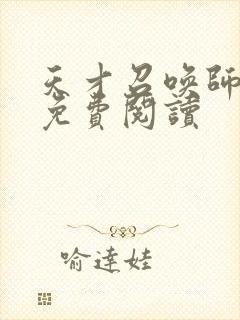 天才召喚師
免費閱讀
喻達娃